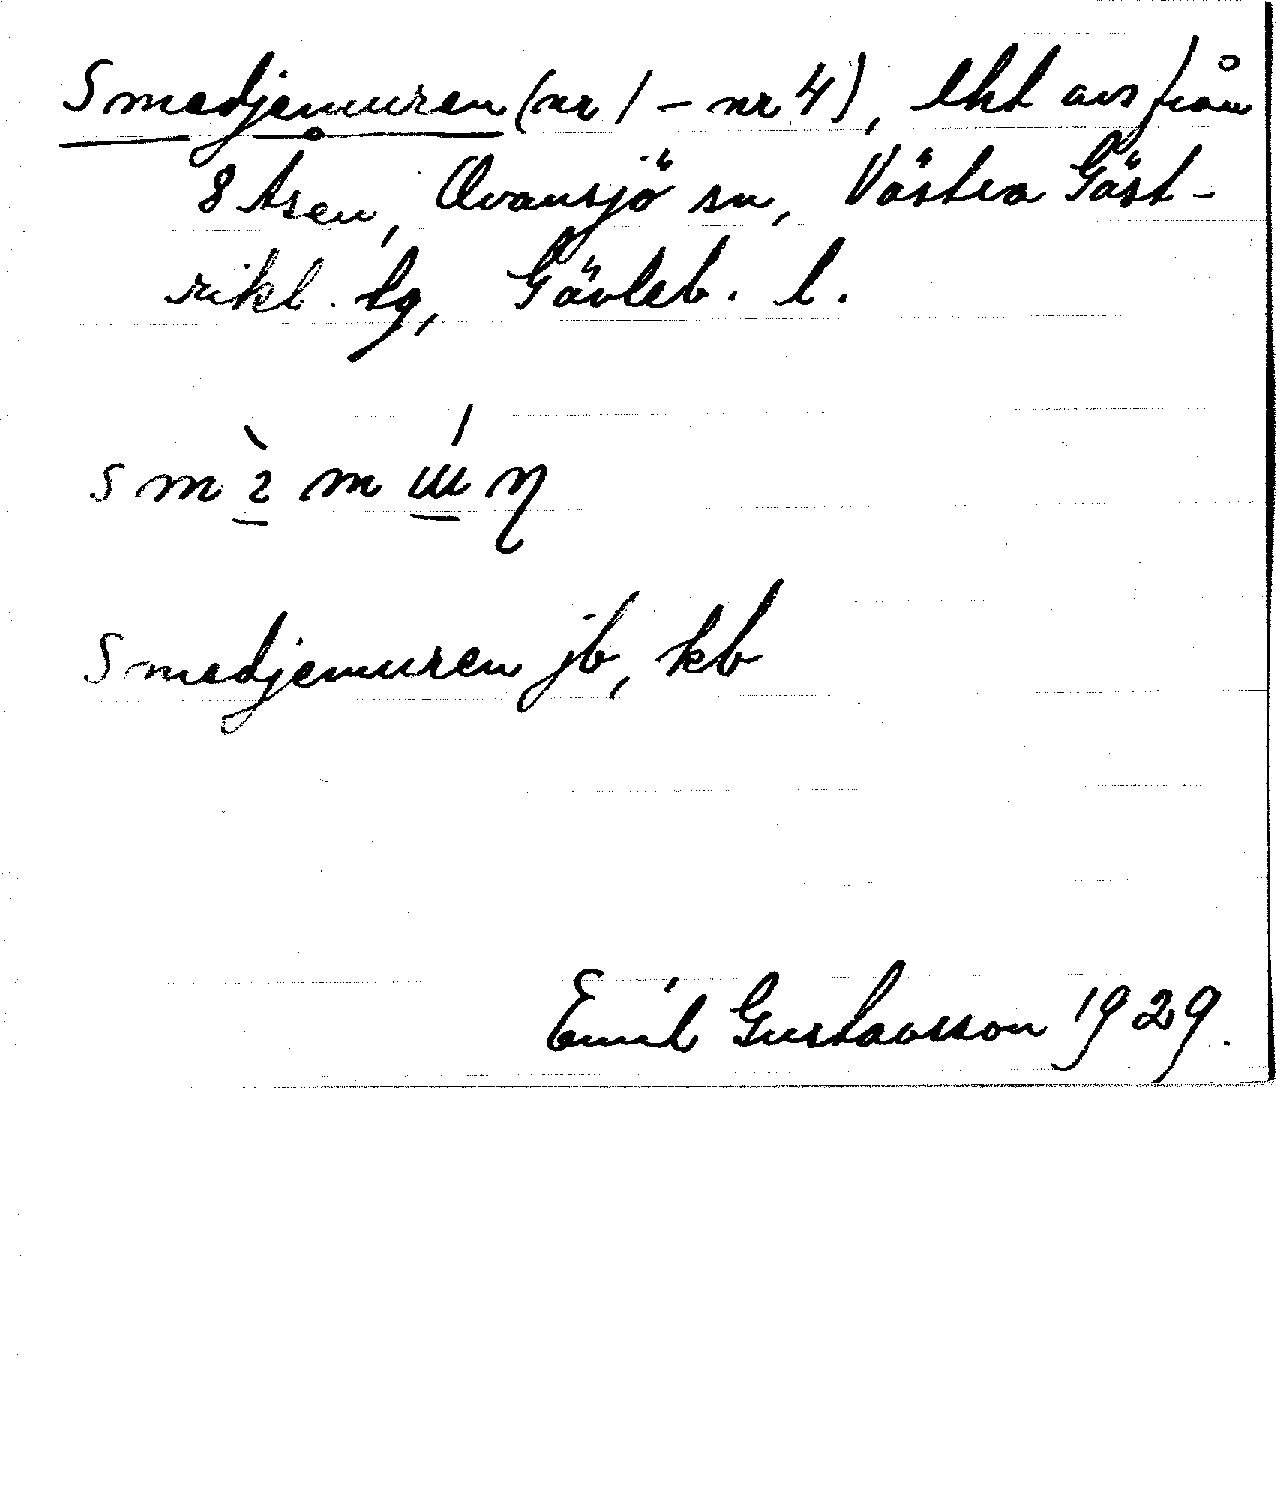 Smedjemuren (nr 1 – nr 4), lht avs från
8 Åsen, Ovansjö sn, Västra Gäst-
rikl. tg, Gävleb. l.
Smedjemuren jb, kb
Emil Gustavsson 1929.